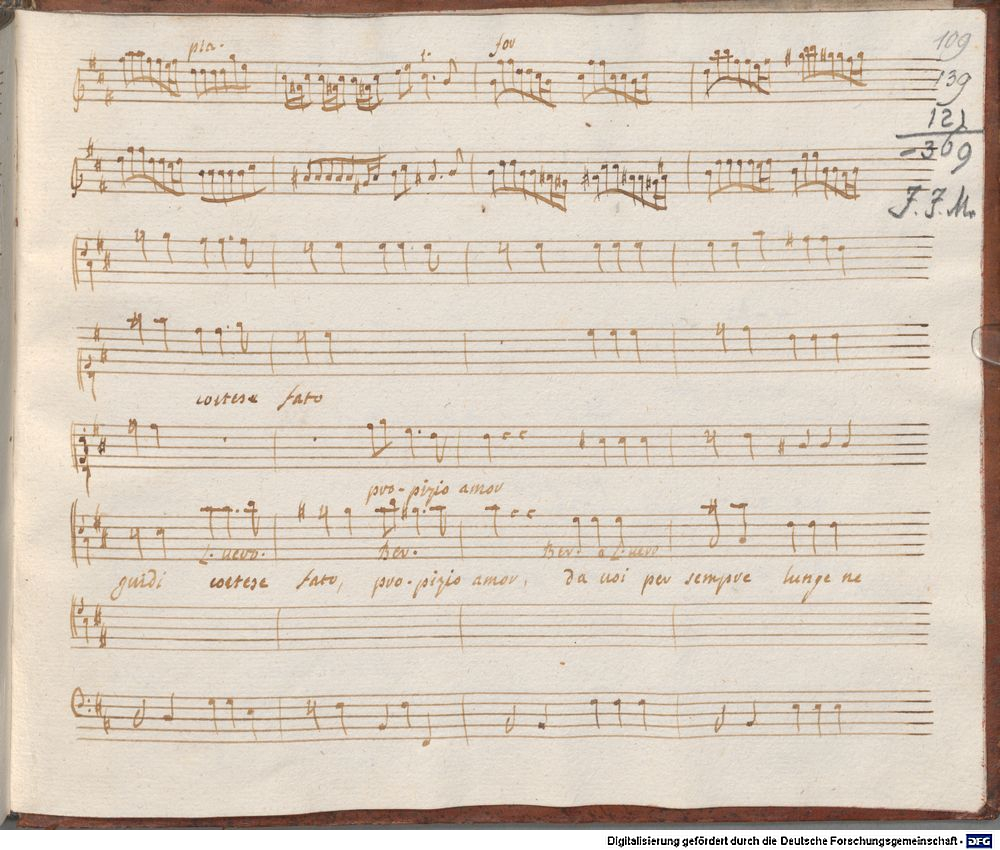 pia. for 109
139
121
-369
J. J. M.
cortese fato
pro-pizio amor
L. vero. Ber. Ber. e L. vero
guidi cortese fato, pro-pizio amor, da voi per sempre lunge ne
Digitalisierung gefördert durch die Deutsche Forschungsgemeinschaft - DFG